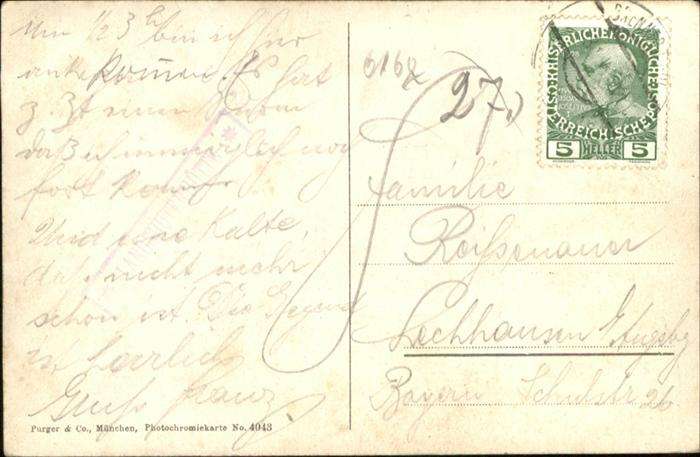 Um 1/2 3 h bin ich hier
ankekommen. Es hat
z. Zt einen Sturm
daß unmöglich noch
fort kommt
Und eine Kälte,
daß nicht mehr
schön ist. Die Gegend
ist herrlich
Gruß Franz
Purger & Co., München, Photochromiekarte No. 4043
6162
27.
KAISERLICHEKÖNIGLICHE
ÖSTERREICHISCHE POST
5 HELLER 5
Familie
Reißenauer
Lechhausen b/Augsbg
Bayern Schulstr 26